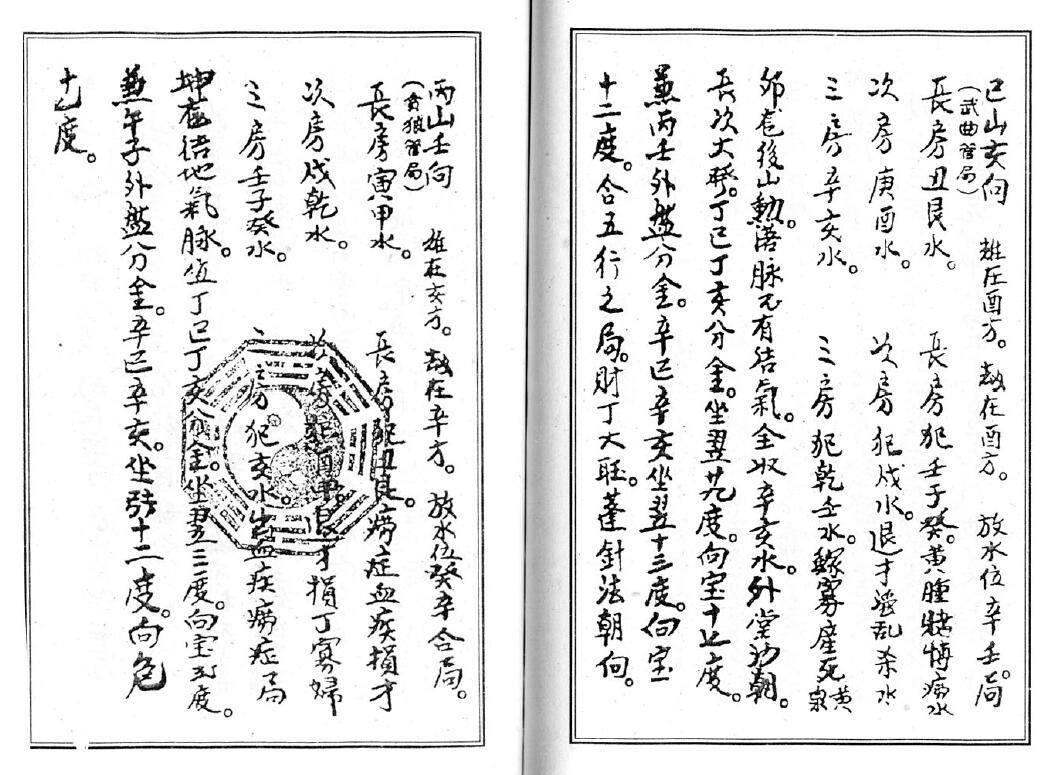 巳山亥向　雄在酉方。劫在酉方。放水位辛壬局
（武曲管局）
長房丑艮水。長房犯壬子癸。黃腫賭博痨水
次房庚酉水。次房犯戌水。退才淫乱杀水
三房辛亥水。三房犯乾壬水。鰥寡產死黃泉
卯尨後山勲。落脉不有结氣。全收辛亥水。外堂朝。
長次大旺。丁巳丁亥分金。坐翌九度。向室十七度。
兼丙壬外盤分金。辛巳辛亥坐翌十三度。向室
十二度。合五行之局。財丁大旺。蓬針法朝向。
丙山壬向　雄在亥方。劫在辛方。放水位癸辛合局。
（貪狼管局）
長房寅甲水。長房犯丑艮。痨症血疾損才
次房戌乾水。次房犯酉辛。損丁寡婦
三房壬子癸水。三房犯亥水。血疾痨症局
坤尨结地氣脉。值丁巳丁亥分金。坐翌三度。向室五度。
兼午子外盤分金。辛巳辛亥。坐張十二度。向危
十七度。